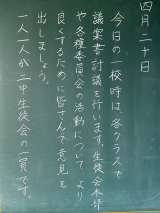 四月二十日
今日の一校時は、各クラスで
議案書討議を行います。生徒会本部
や各種委員会の活動について、より
良くするために皆さんで意見を
出しましょう。
一人一人が二中生徒会の一員です。